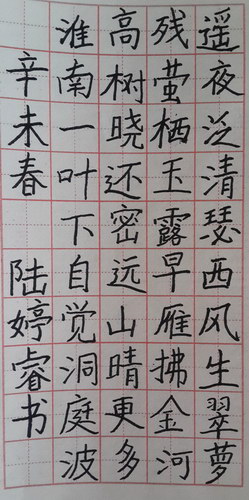 遥夜泛清瑟西风生翠萝
残萤栖玉露早雁拂金河
高树晓还密远山晴更多
淮南一叶下自觉洞庭波
辛未春 陆婷睿书